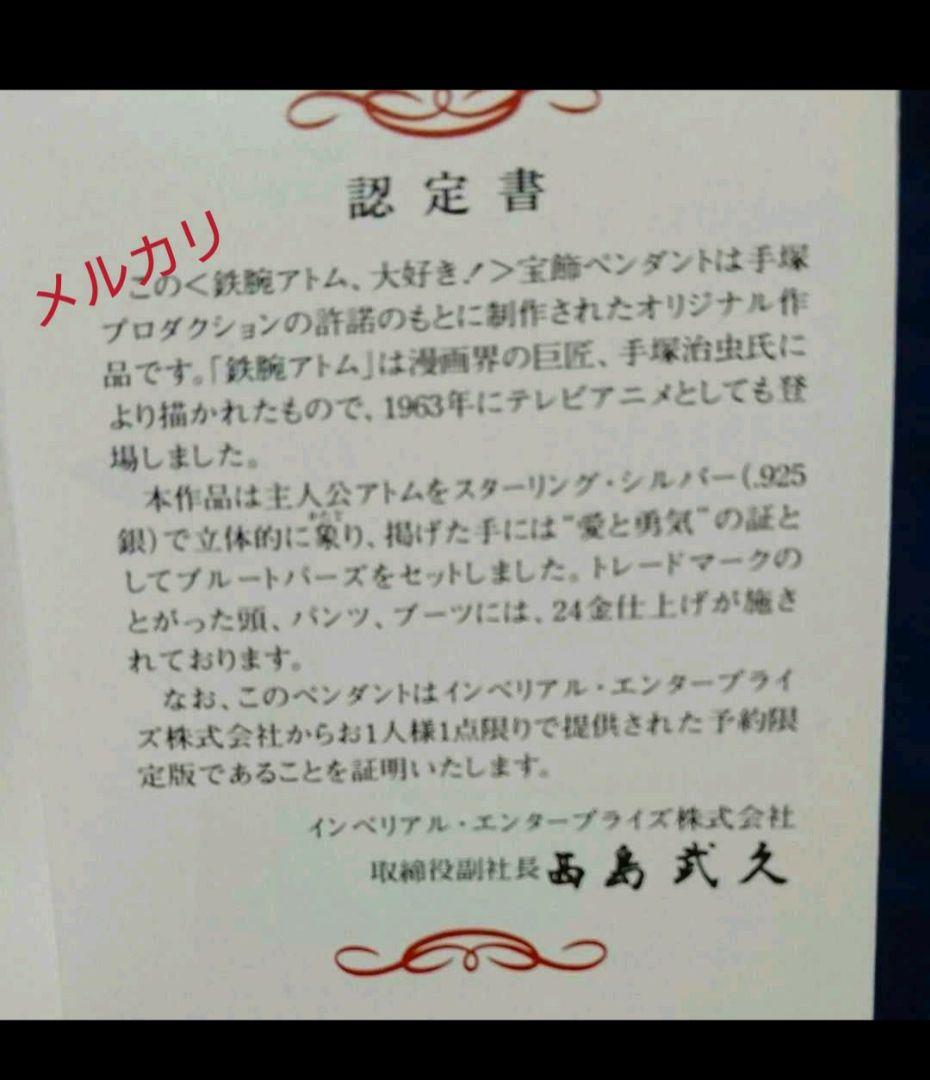 認定書
メルカリ
この<鉄腕アトム、大好き!>宝飾ペンダントは手塚
プロダクションの許諾のもとに制作されたオリジナル作
品です。「鉄腕アトム」は漫画界の巨匠、手塚治虫氏に
より描かれたもので、1963年にテレビアニメとしても登
場しました。
本作品は主人公アトムをスターリング・シルバー(.925
銀)で立体的に象り、掲げた手には"愛と勇気"の証と
してブルートパーズをセットしました。トレードマークの
とがった頭、パンツ、ブーツには、24金仕上げが施さ
れております。
なお、このペンダントはインペリアル・エンタープライ
ズ株式会社からお1人様1点限りで提供された予約限
定版であることを証明いたします。
インペリアル・エンタープライズ株式会社
取締役副社長 西島武久